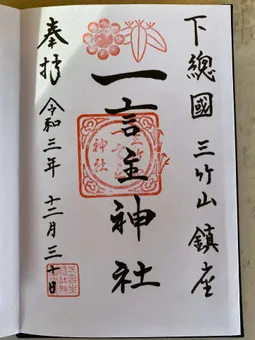 下總國 三竹山 鎮座
一言主神社
奉拝 令和三年 十二月三十日